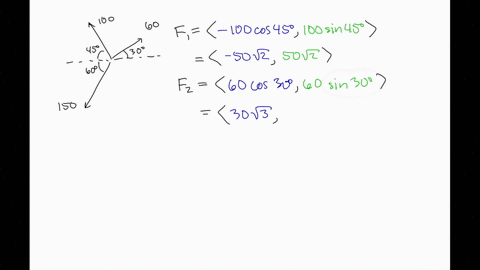 100
60
45°
30°
60°
150
F₁ = ⟨-100cos45°, 100sin45°⟩
= ⟨-50√2, 50√2⟩
F₂ = ⟨60 cos 30°, 60 sin 30°⟩
= ⟨30√3,